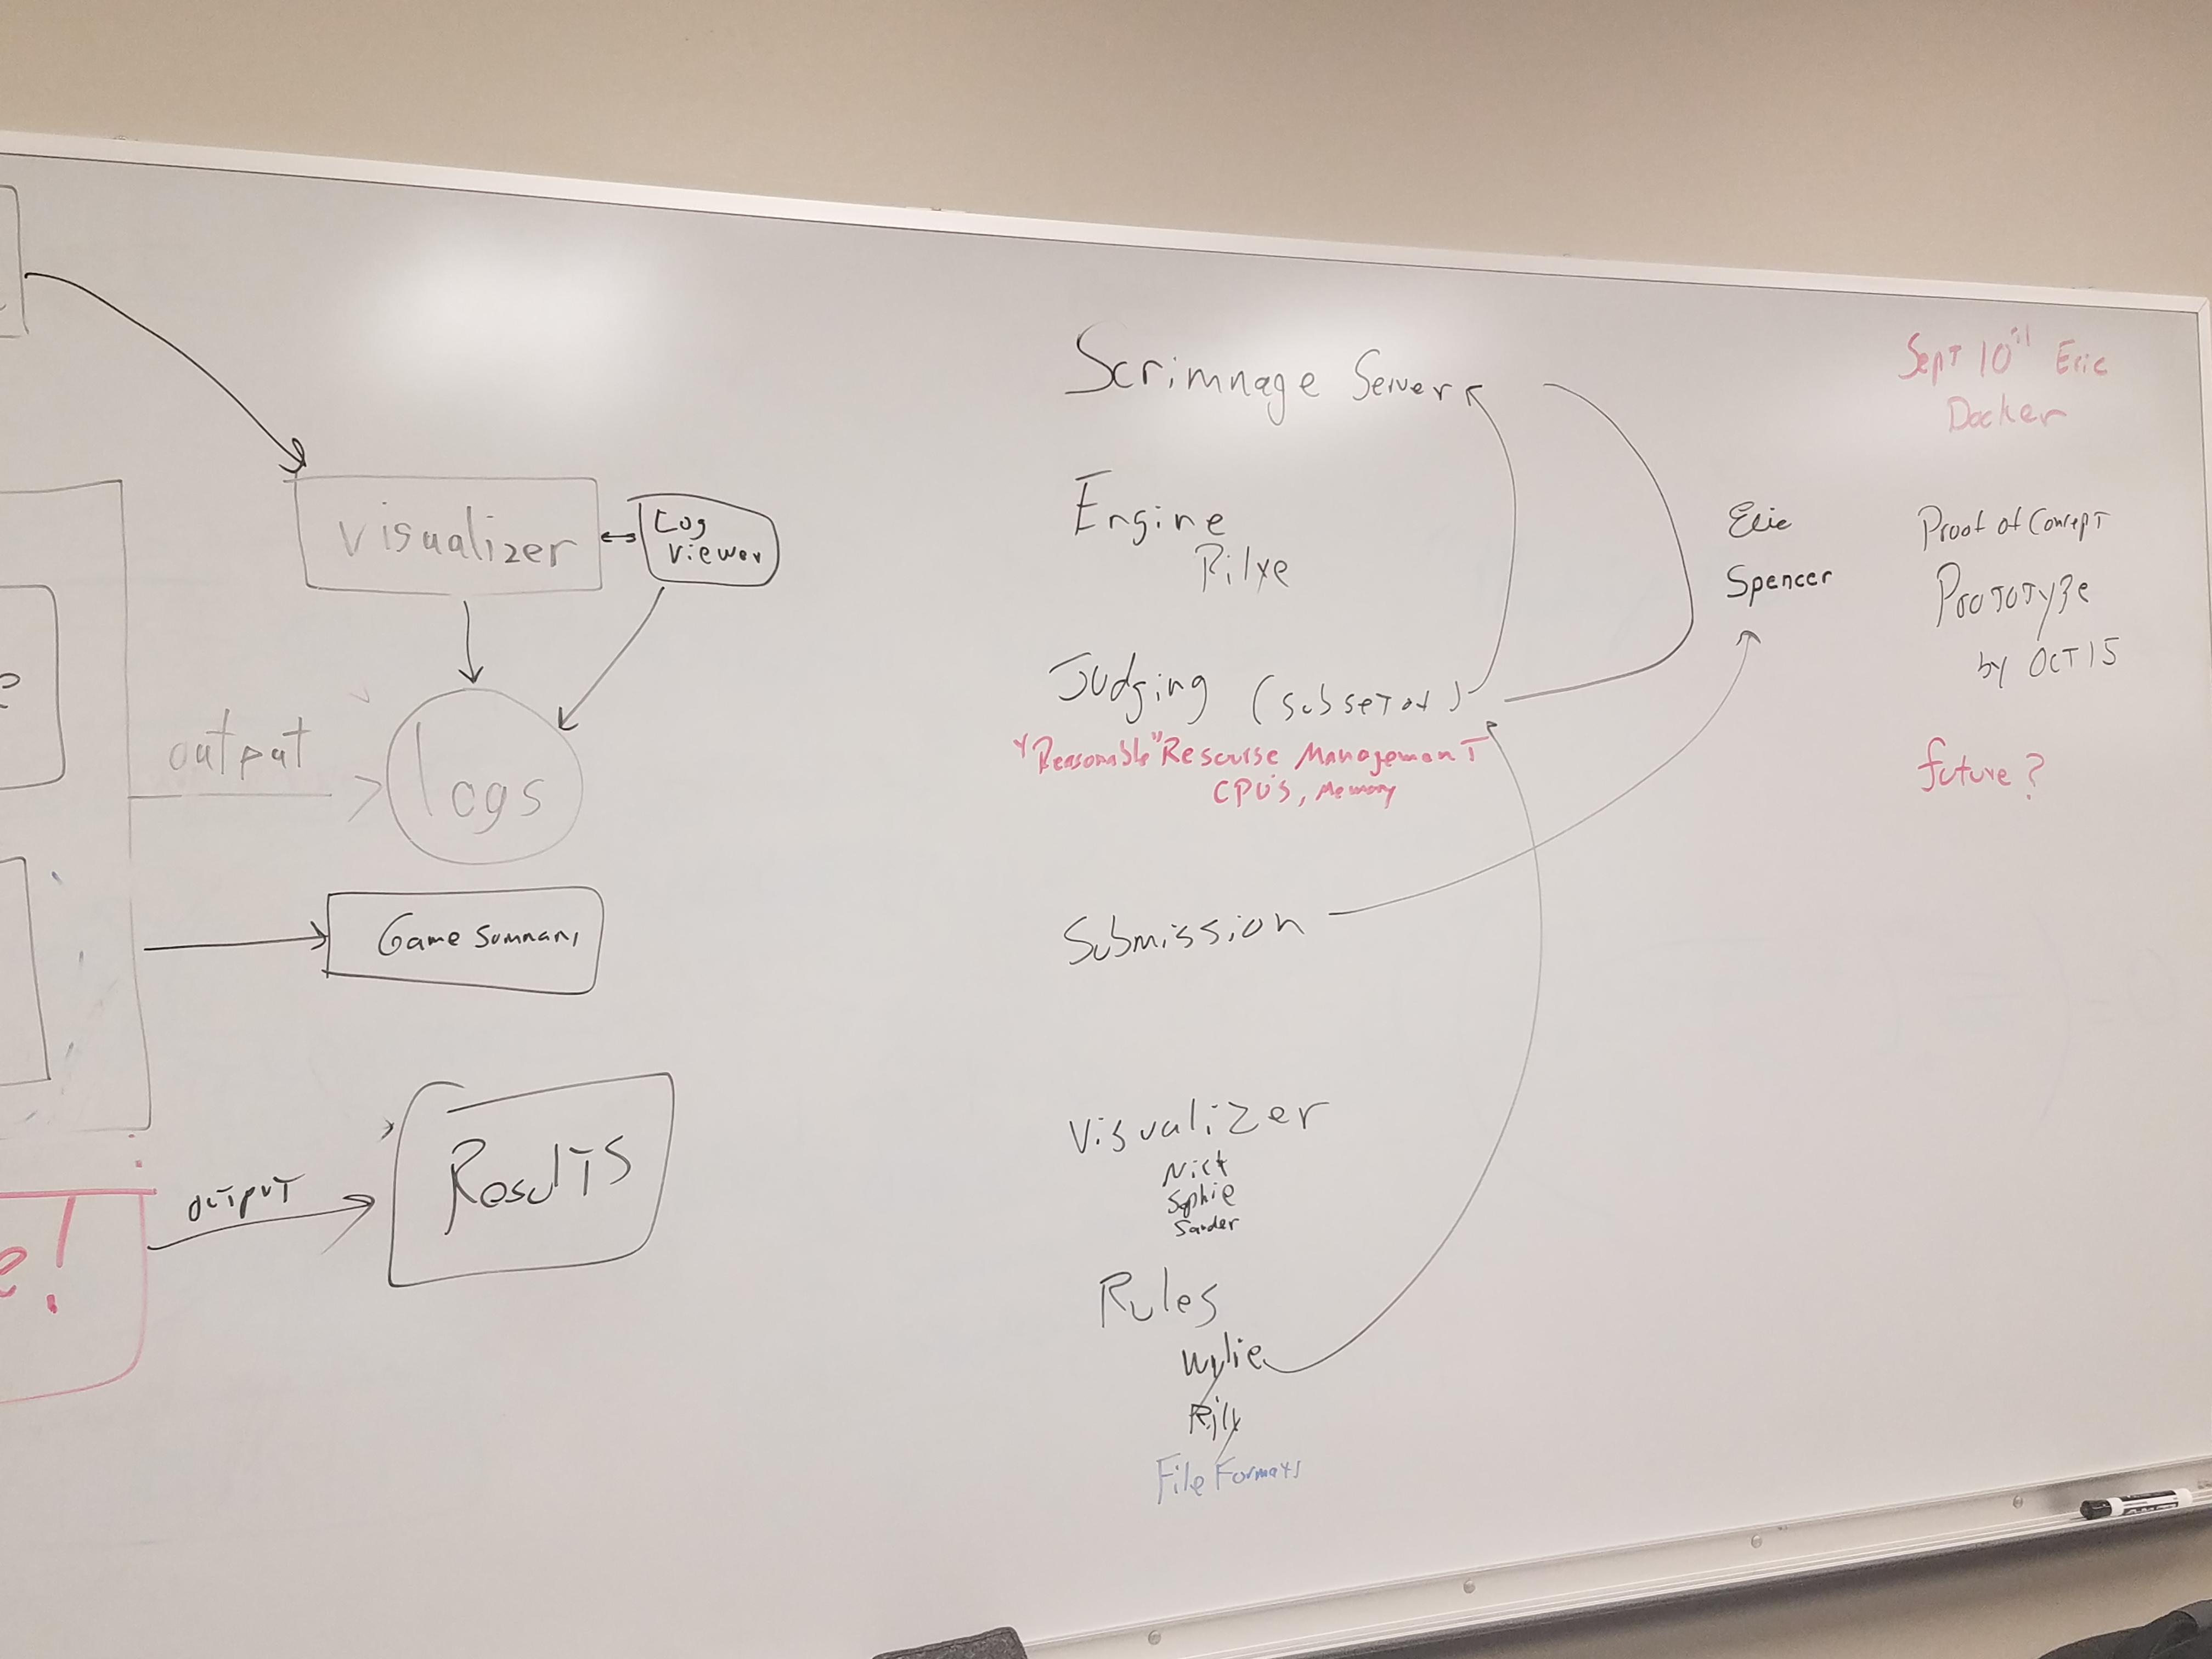 visualizer
Log
Viewer
output
logs
Game Summary
output
Results
e!
Scrimnage Server
Engine
Judging (subset of)
"Reasonable" Rescurse Management
CPU's, Memory
Submission
Visualizer
Nick
Sophie
Sander
Rules
Wylie
File Formats
Spencer
Sept 10th Eric
Docker
Proof of Concept
Prototype
by Oct 15
future?